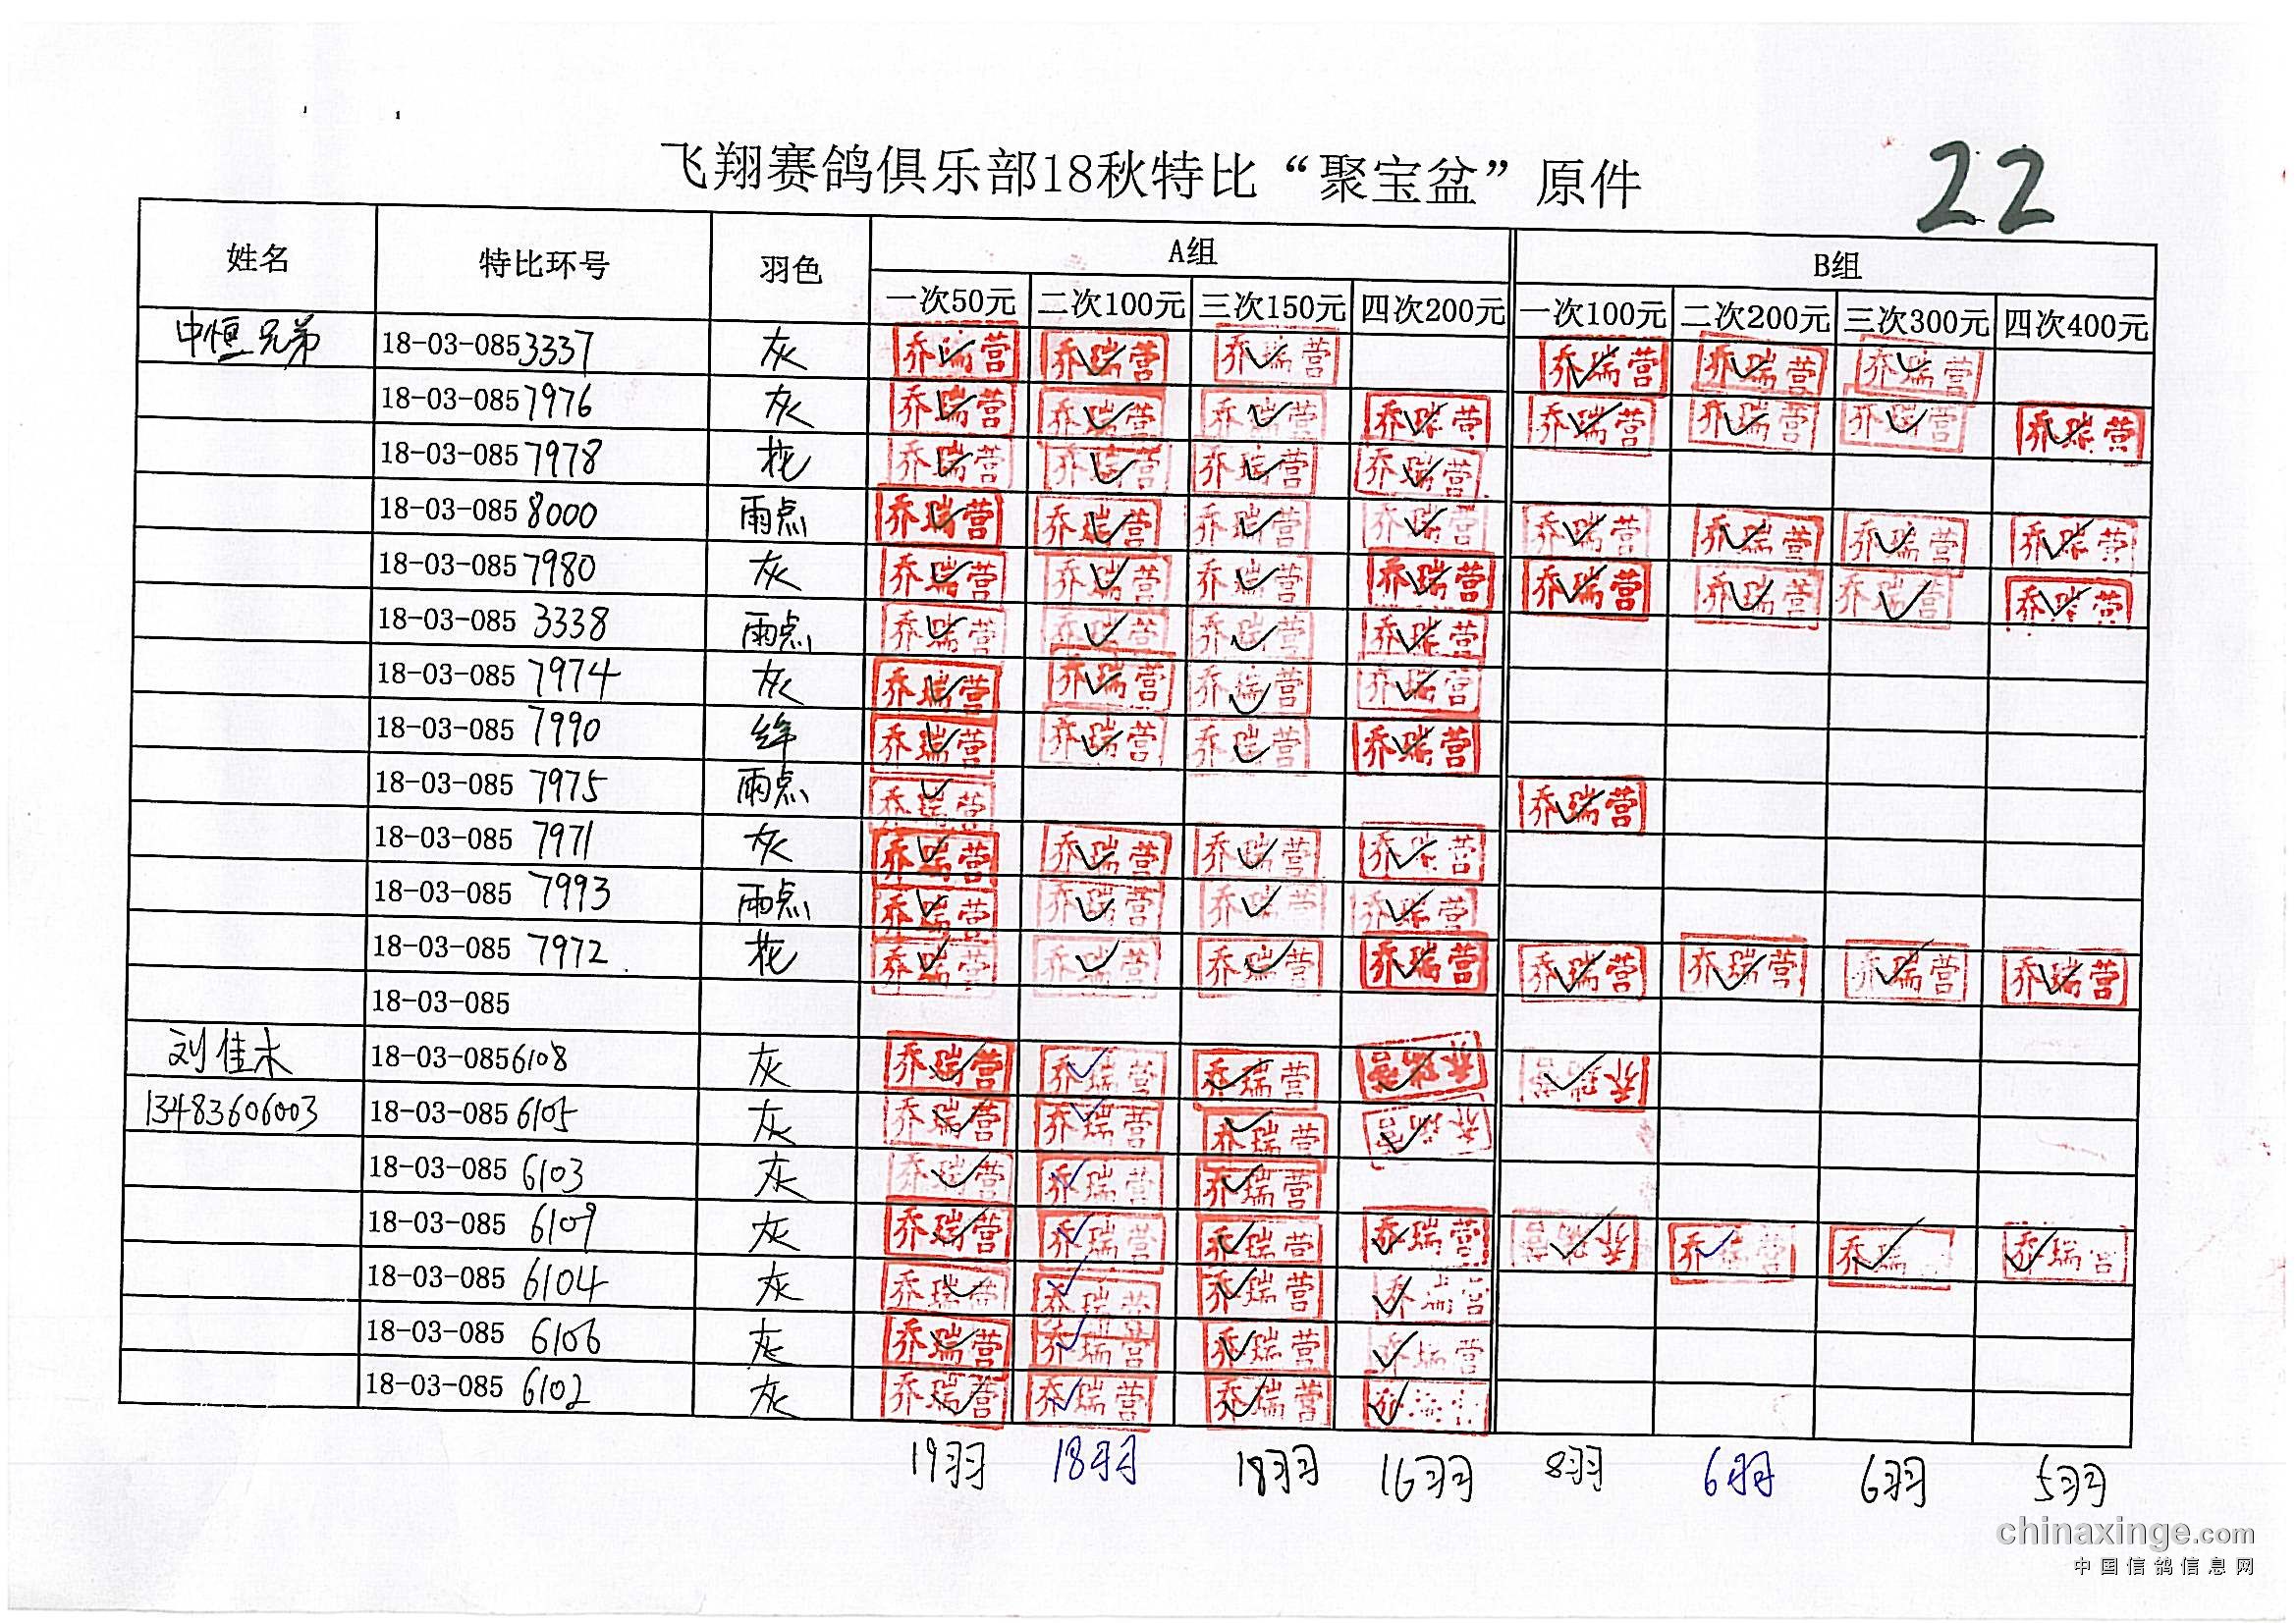 飞翔赛鸽俱乐部18秋特比“聚宝盆”原件
22
姓名 特比环号 羽色 A组 B组
一次50元 二次100元 三次150元 四次200元 一次100元 二次200元 三次300元 四次400元
中恒兄弟 18-03-0853337 灰 乔瑞营 乔瑞营 乔瑞营 乔瑞营 乔瑞营 乔瑞营
18-03-0857976 灰 乔瑞营 乔瑞营 乔瑞营 乔瑞营 乔瑞营 乔瑞营 乔瑞营 乔瑞营
18-03-0857978 花 乔瑞营 乔瑞营 乔瑞营 乔瑞营
18-03-0858000 雨点 乔瑞营 乔瑞营 乔瑞营 乔瑞营 乔瑞营 乔瑞营 乔瑞营 乔瑞营
18-03-0857980 灰 乔瑞营 乔瑞营 乔瑞营 乔瑞营 乔瑞营 乔瑞营 乔瑞营 乔瑞营
18-03-0853338 雨点 乔瑞营 乔瑞营 乔瑞营 乔瑞营
18-03-0857974 灰 乔瑞营 乔瑞营 乔瑞营 乔瑞营
18-03-0857990 绛 乔瑞营 乔瑞营 乔瑞营 乔瑞营
18-03-0857975 雨点 乔瑞营 乔瑞营
18-03-0857971 灰 乔瑞营 乔瑞营 乔瑞营 乔瑞营
18-03-0857993 雨点 乔瑞营 乔瑞营 乔瑞营 乔瑞营
18-03-0857972 花 乔瑞营 乔瑞营 乔瑞营 乔瑞营 乔瑞营 乔瑞营 乔瑞营 乔瑞营
18-03-085
刘佳木 18-03-0856108 灰 乔瑞营 乔瑞营 乔瑞营 乔瑞营 乔瑞营
13483606003 18-03-0856105 灰 乔瑞营 乔瑞营 乔瑞营 乔瑞营
18-03-0856103 灰 乔瑞营 乔瑞营 乔瑞营
18-03-0856109 灰 乔瑞营 乔瑞营 乔瑞营 乔瑞营 乔瑞营 乔瑞营 乔瑞营 乔瑞营
18-03-0856104 灰 乔瑞营 乔瑞营 乔瑞营 乔瑞营
18-03-0856106 灰 乔瑞营 乔瑞营 乔瑞营 乔瑞营
18-03-0856102 灰 乔瑞营 乔瑞营 乔瑞营
19羽 18羽 18羽 16羽 8羽 6羽 6羽 5羽
chinaxinge.com
中国信鸽信息网